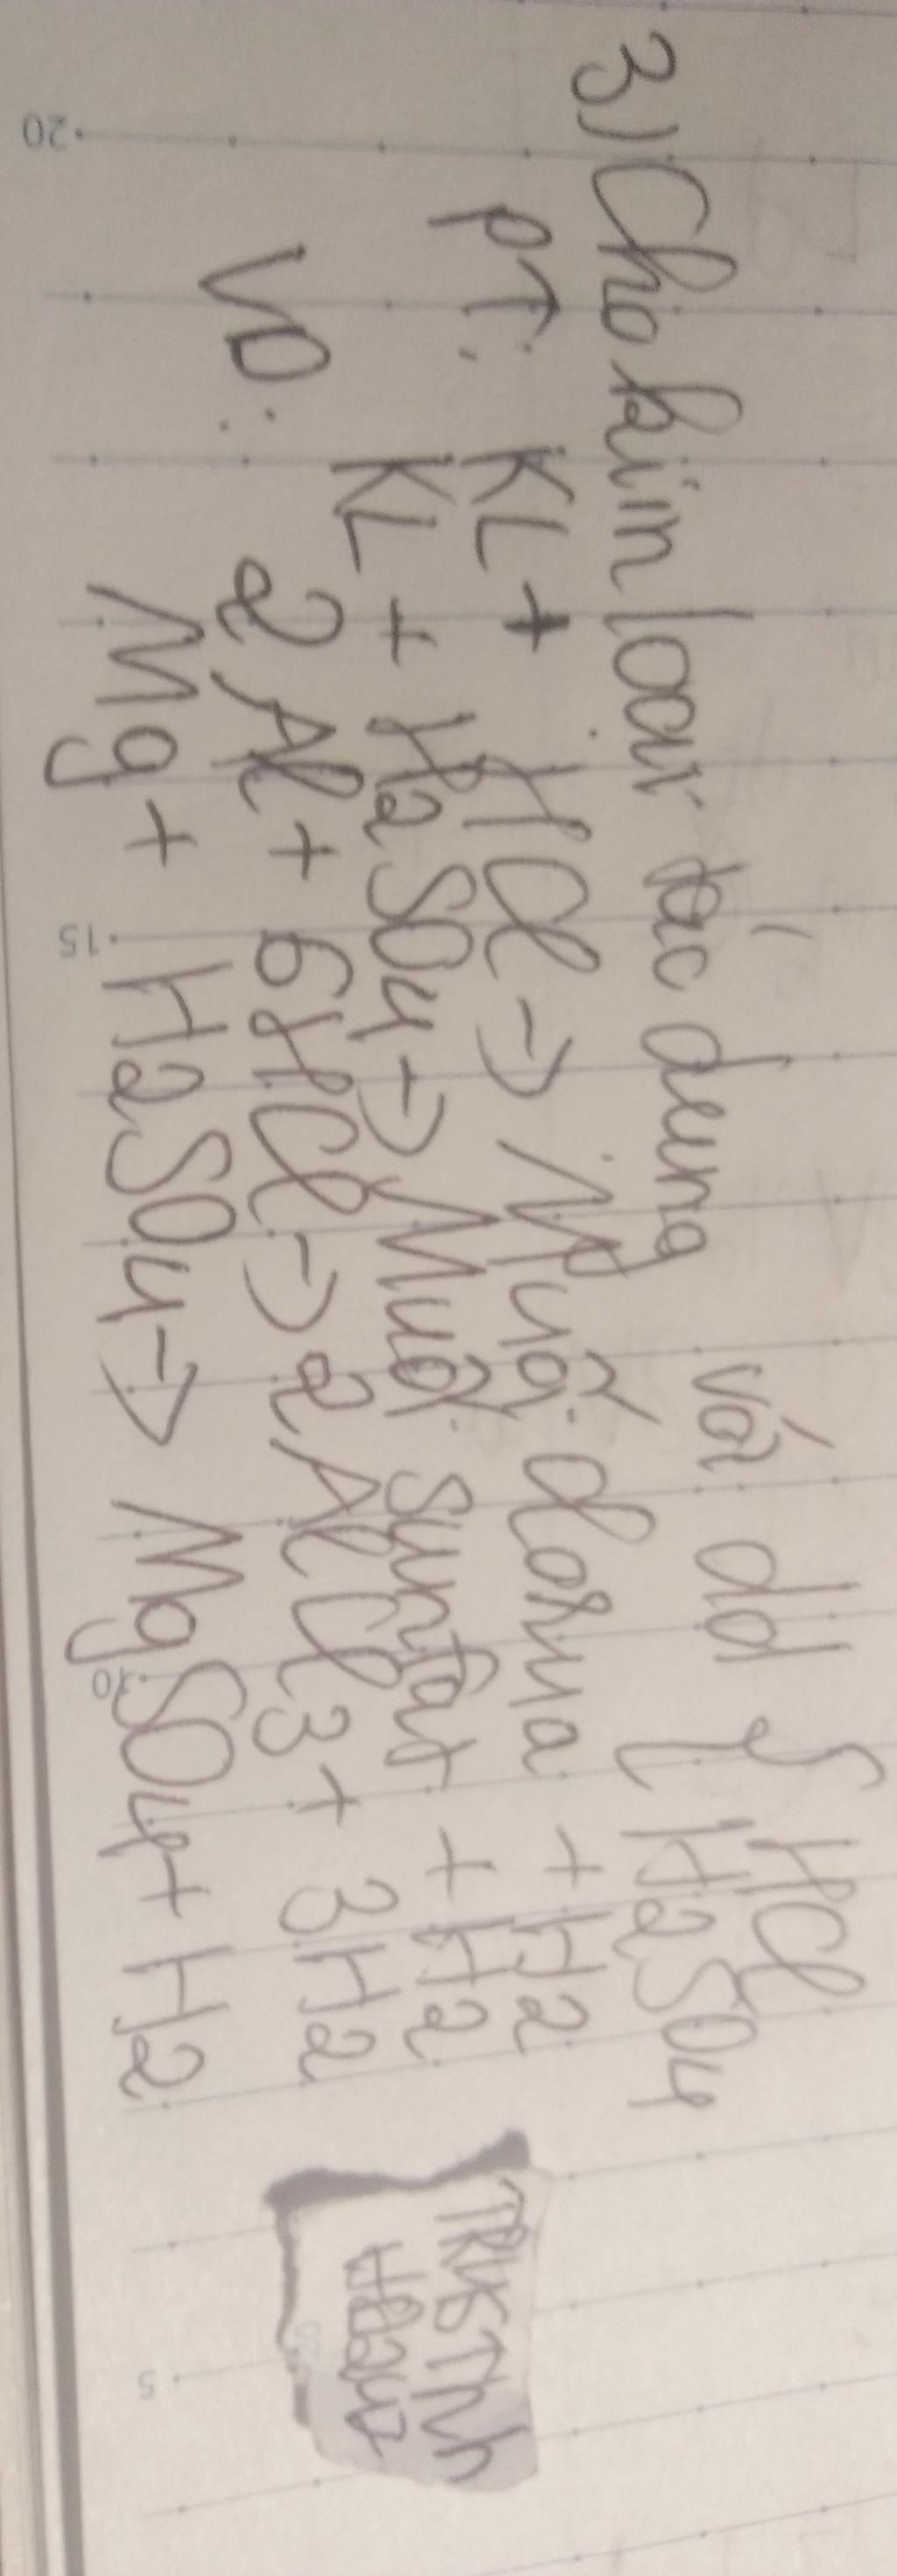 3) Cho kim loại tác dụng với dd { HCl
H2SO4
PT: KL + HCl → Muối clorua + H2
KL + H2SO4 → Muối sunfat + H2
VD: 2Al + 6HCl → 2AlCl3 + 3H2
Mg + H2SO4 → MgSO4 + H2
20
15
10
5